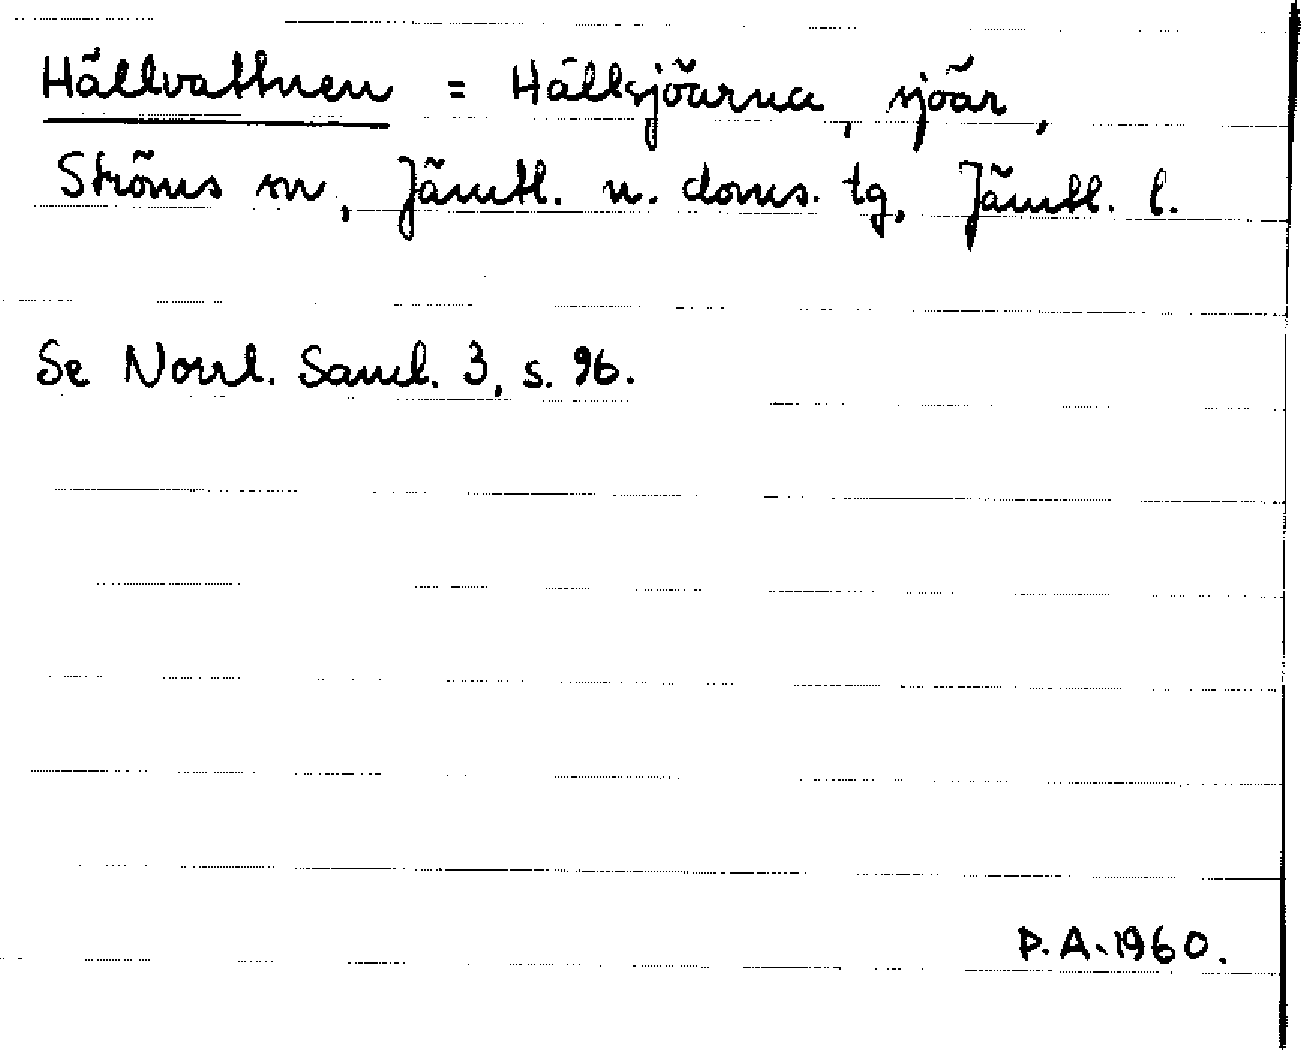 Hällvattnen = Hällsjöarna, sjöar,
Ströms sn, Jämtl. n. doms. tg, Jämtl. l.
Se Norrl. Saml. 3, s. 96.
P.A. 1960.